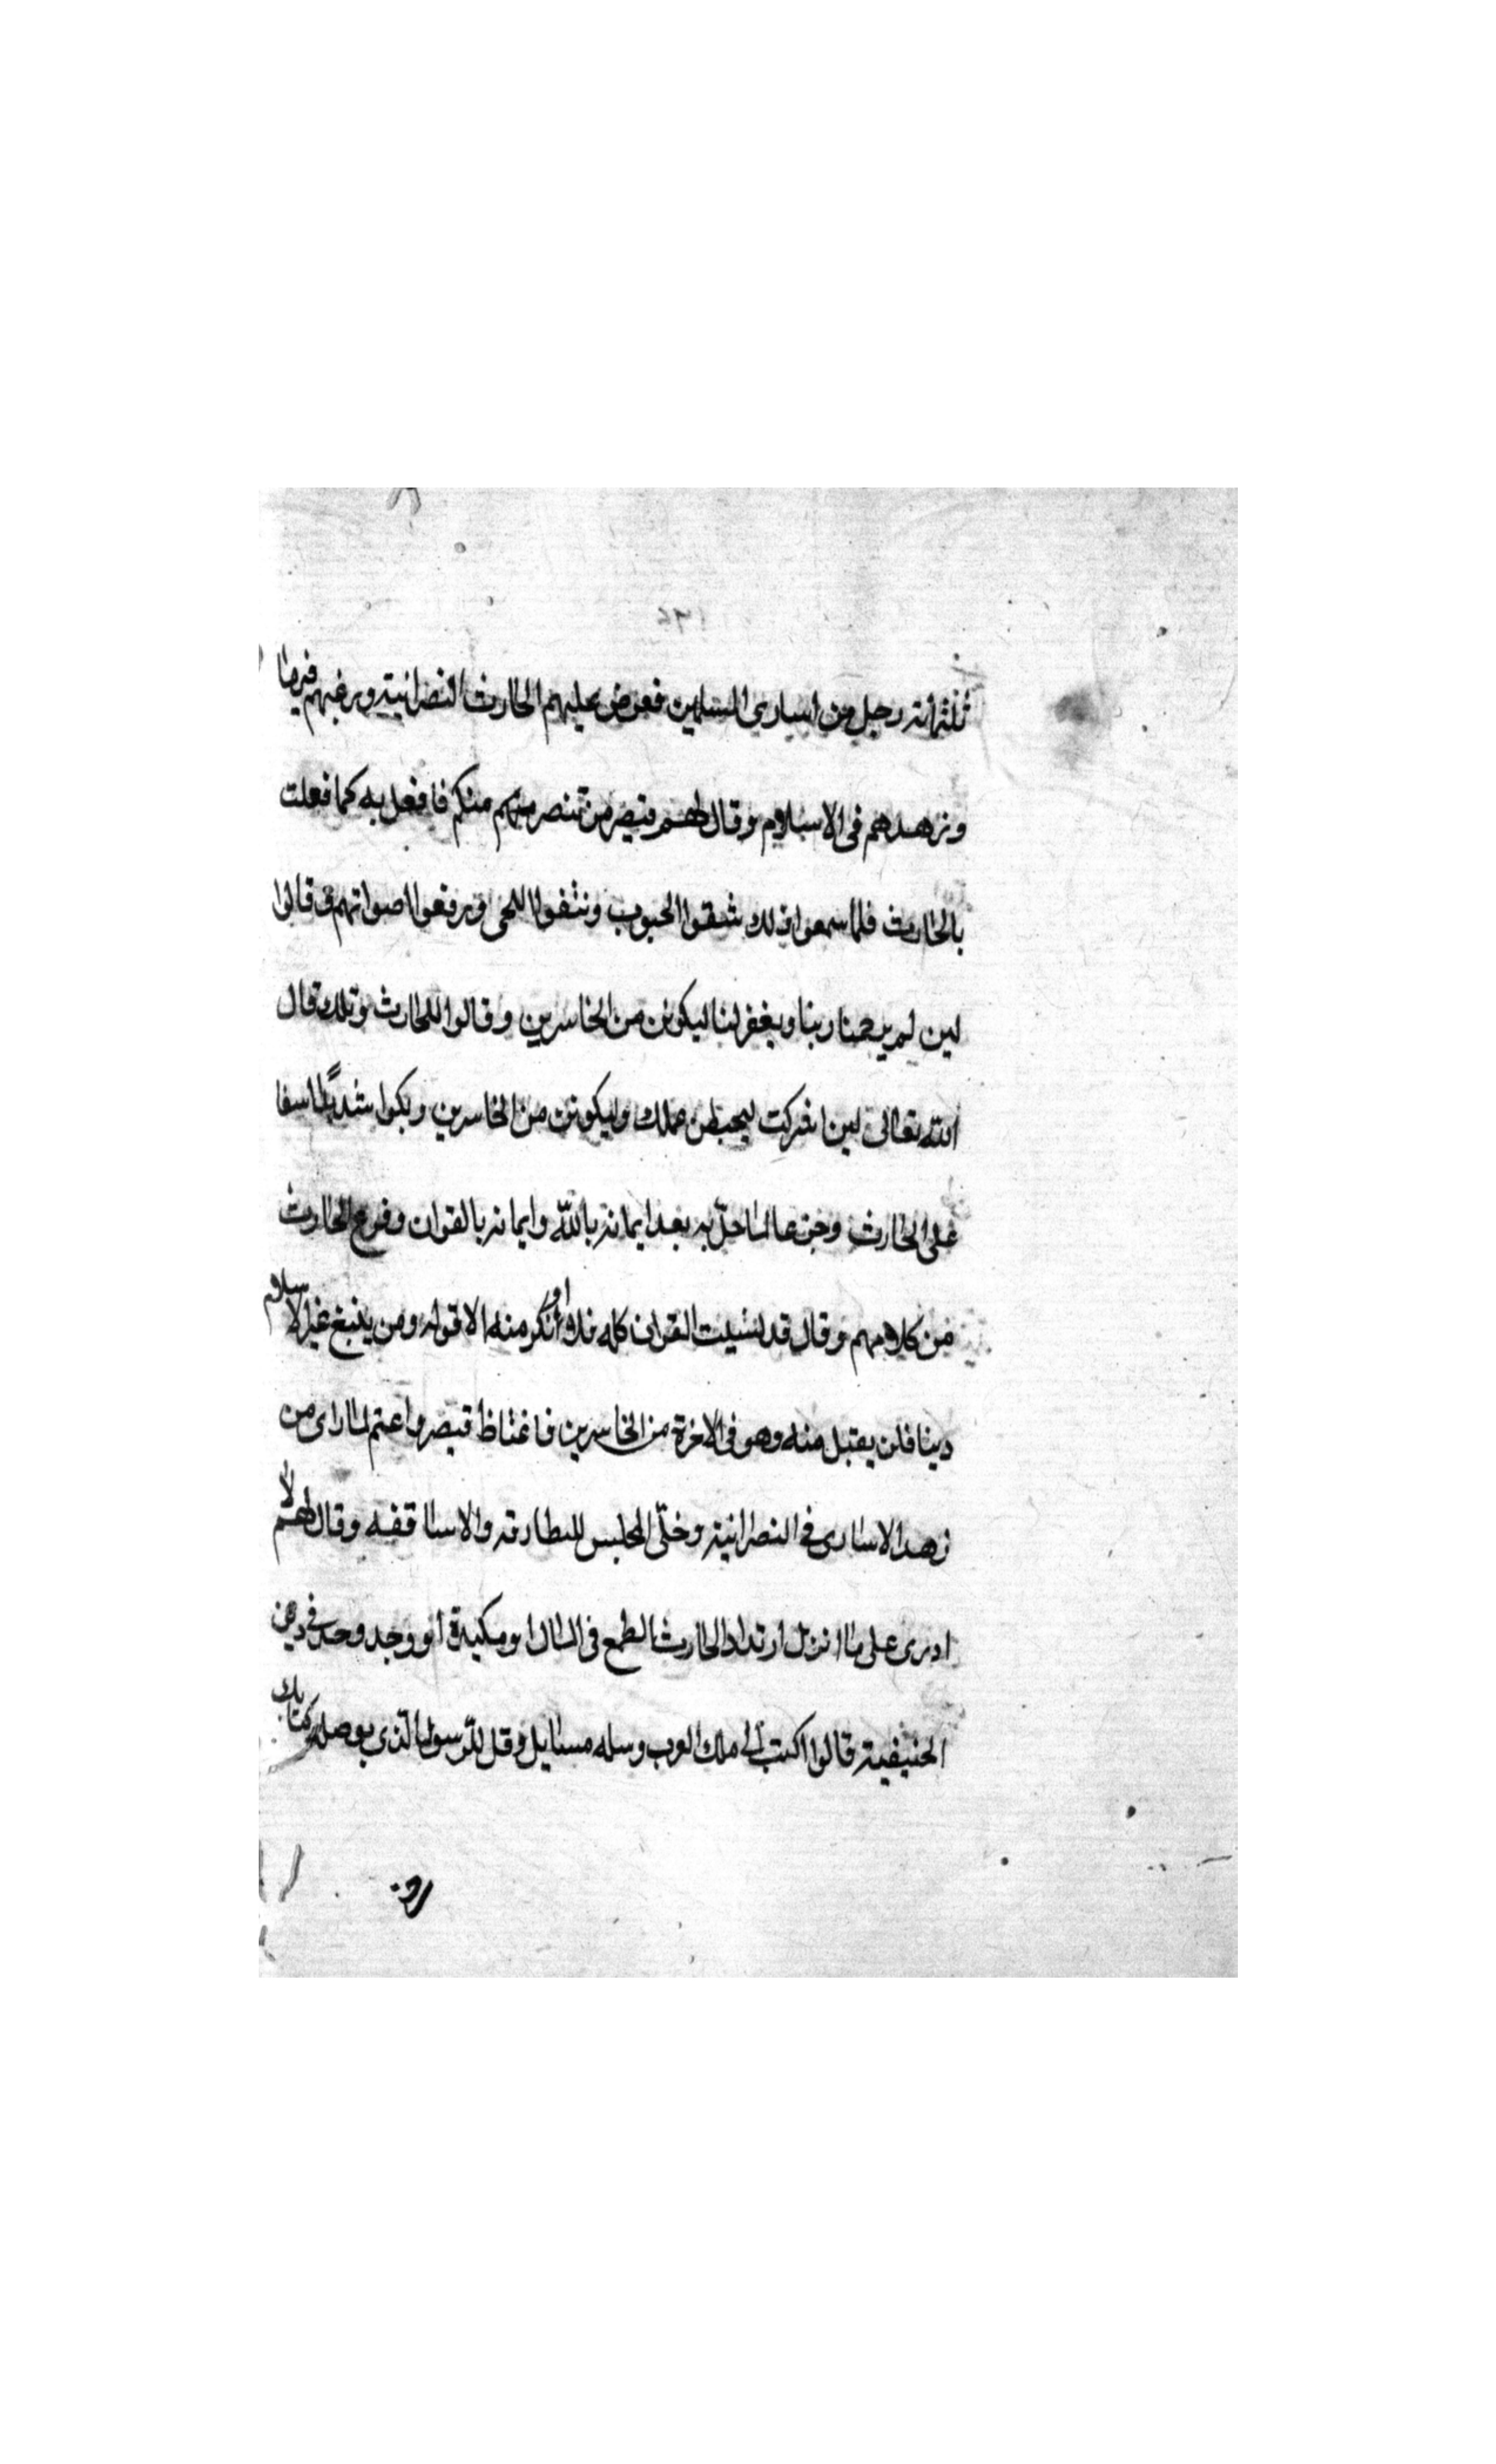 ثلثمائة رجل من اسارى المسلمين فعرض عليهم الحارث النصرانية ورغبهم فيها
وزهدهم فى الاسلام وقال لهم قيصر من تنصر منهم منكم فافعل به كما فعلت
بالحارث فلما سمعوا ذلك شقوا الجيوب ونتفوا اللحى ورفعوا اصواتهم وقالوا
لين لم يرحمنا ربنا ويغفر لنا ليكونن من الخاسرين وقالوا للحارث وتلك قال
الله تعالى لين اشركت ليحبطن عملك وليكونن من الخاسرين وبكوا شديدًا اسفا
على الحارث وحزنا لما حلّ به بعد ايمانه باللّه وايمانه بالقران وفزع الحارث
من كلامهم وقال قد نسيت القران كله فلا أنكر او منه الا قوله ومن يبتغ غير الاسلام
دينا فلن يقبل منه وهو فى الاخرة من الخاسرين فاغتاظ قيصر واغتم لما راى من
زهد الاسارى فى النصرانية وخلّى المجلس للبطارقة والاساقفه وقال لهم لا
ادرى على ما انزل ارتداد الحارث الطمع فى المال او مكيدة أو وجد وحد فى دين
الحنيفية قالوا اكتب الى ملك العرب وسله مسايل وقل للرسول الّذى يوصله كتابك